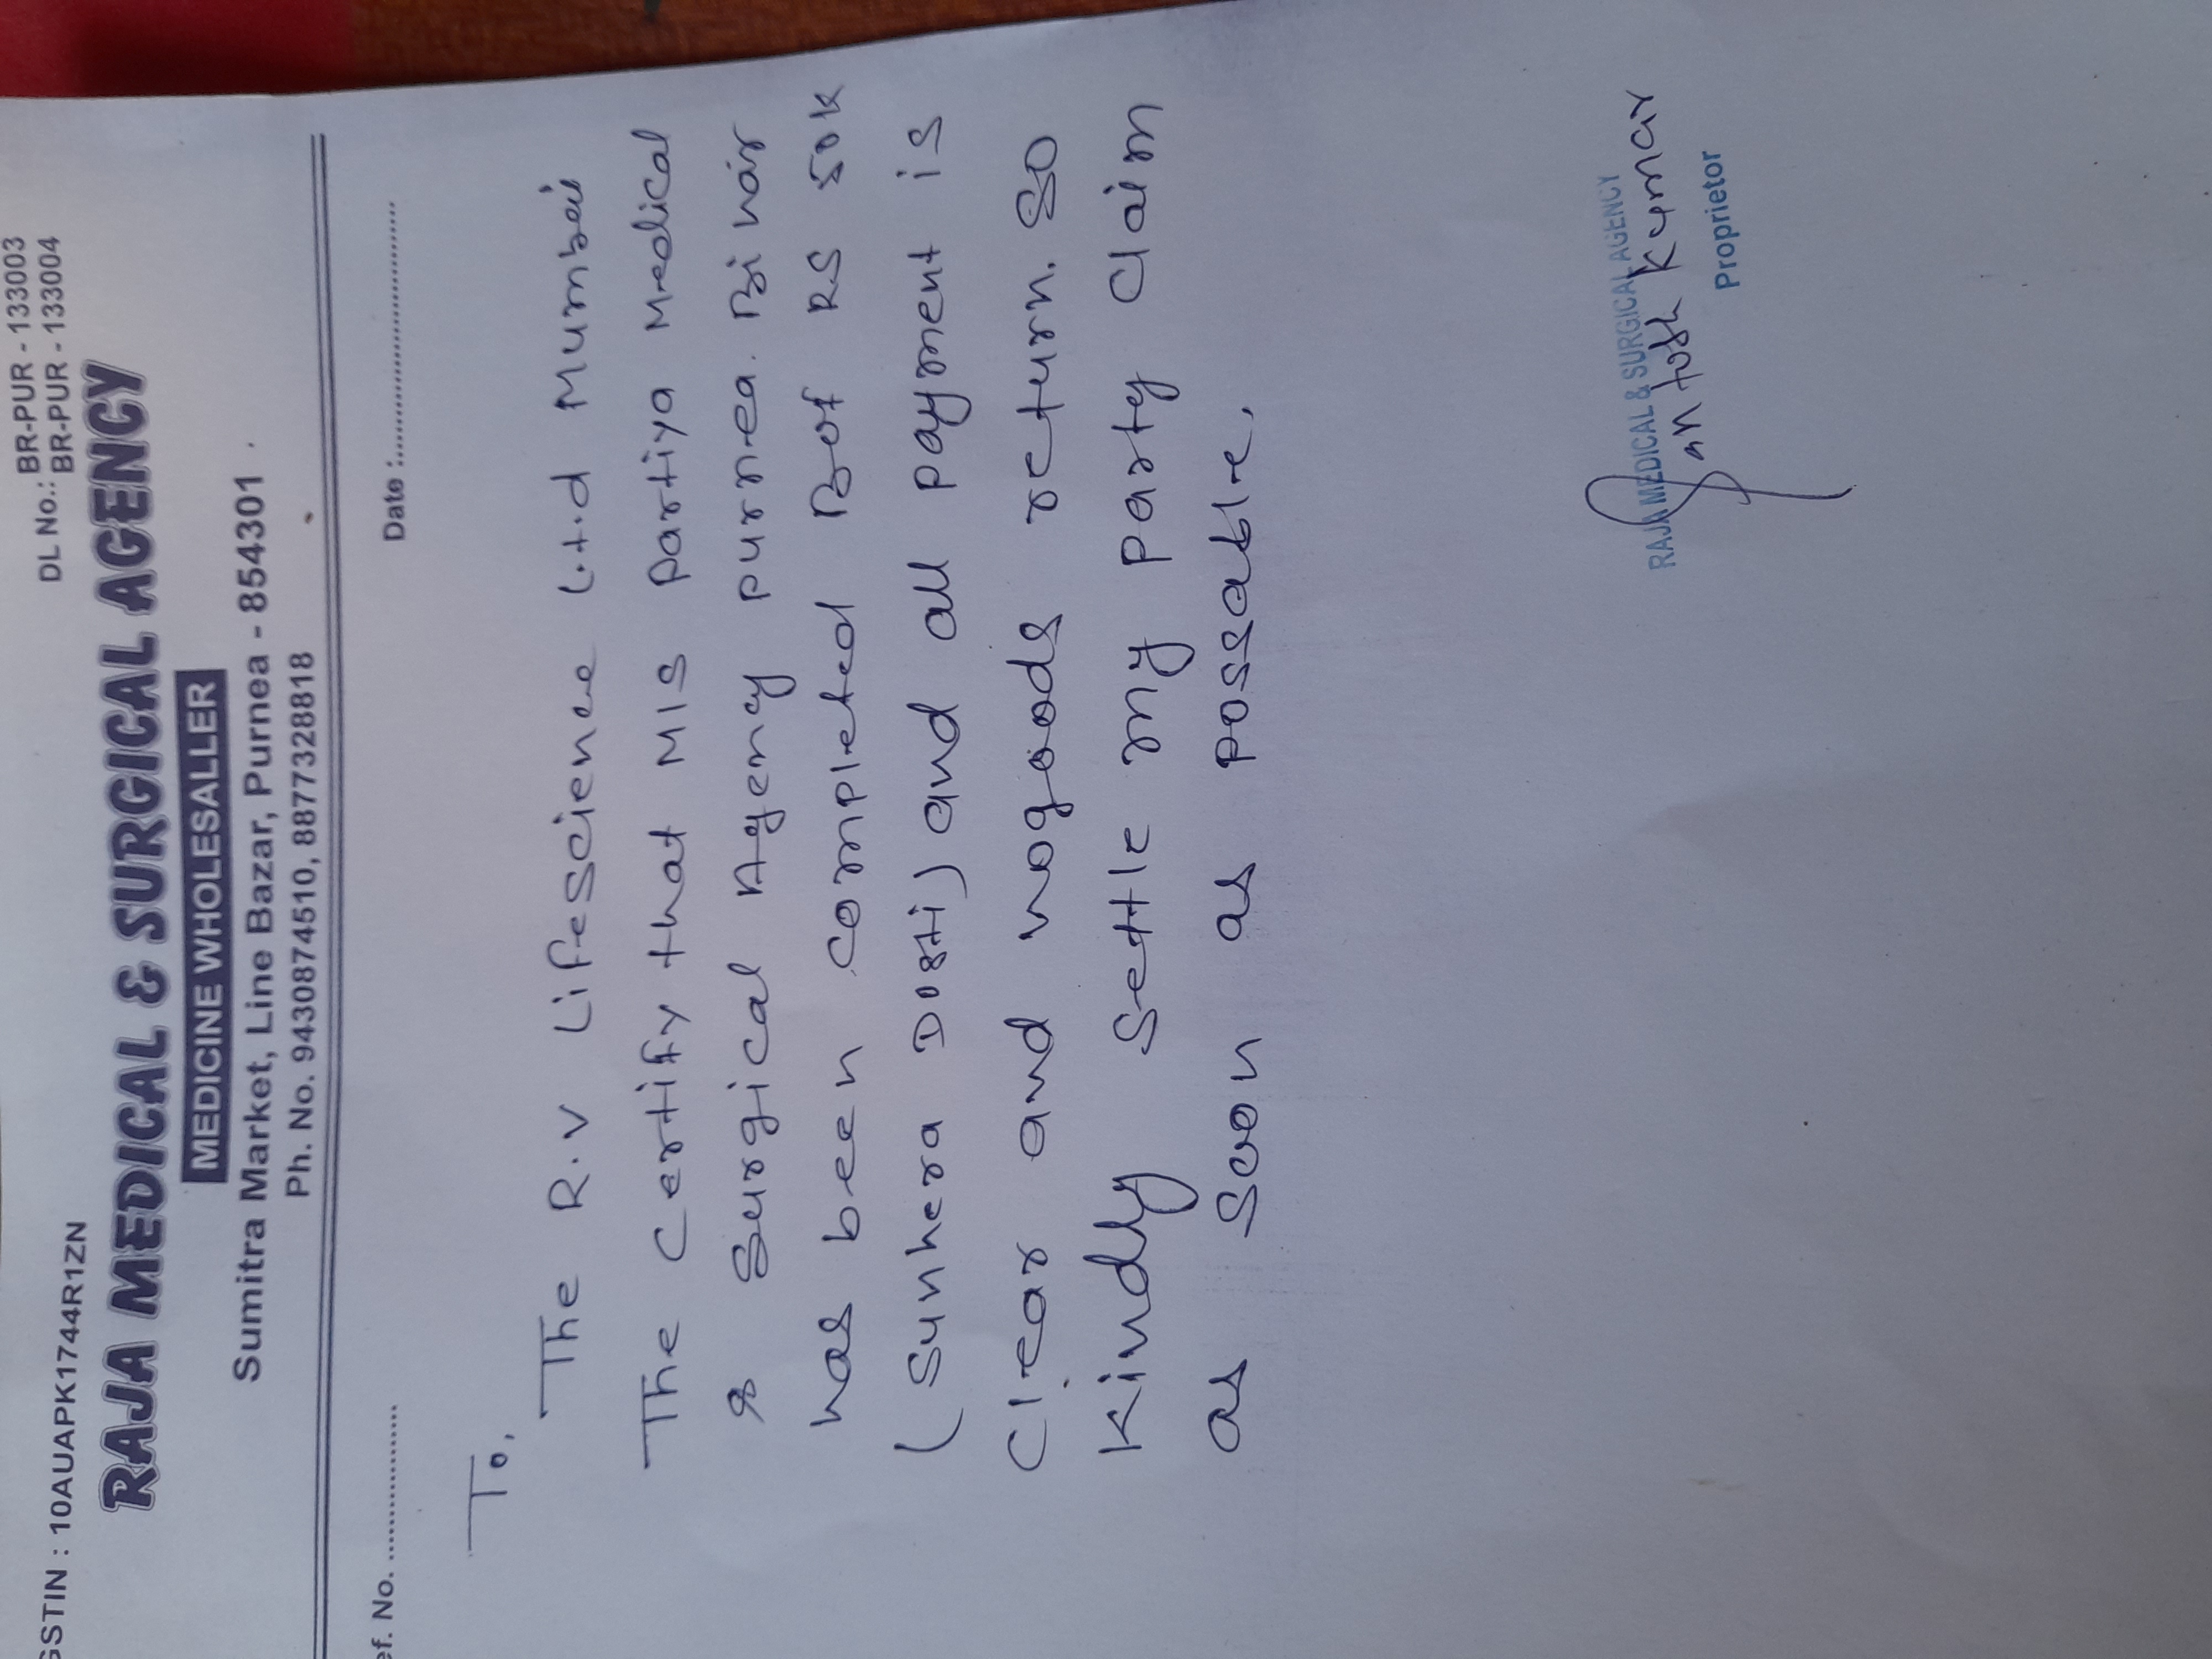 GSTIN : 10AUAPK1744R1ZN
DL No.: BR-PUR - 133003
BR-PUR - 133004
RAJA MEDICAL & SURGICAL AGENCY
MEDICINE WHOLESALLER
Sumitra Market, Line Bazar, Purnea - 854301
Ph. No. 9430874510, 8877328818
ef. No. ............... Date :..............................
To,
The R.V Lifescience Ltd Mumbai
The Certify that M/S Partiya Medical
& Surgical Agency purnea. Bihar
has been completed Bof RS 50K
(Sunhera Dosti) and all payment is
Clear and nogoods return. So
Kindly Settle my party Claim
as soon as possable.
RAJA MEDICAL & SURGICAL AGENCY
Santosh Kumar
Proprietor